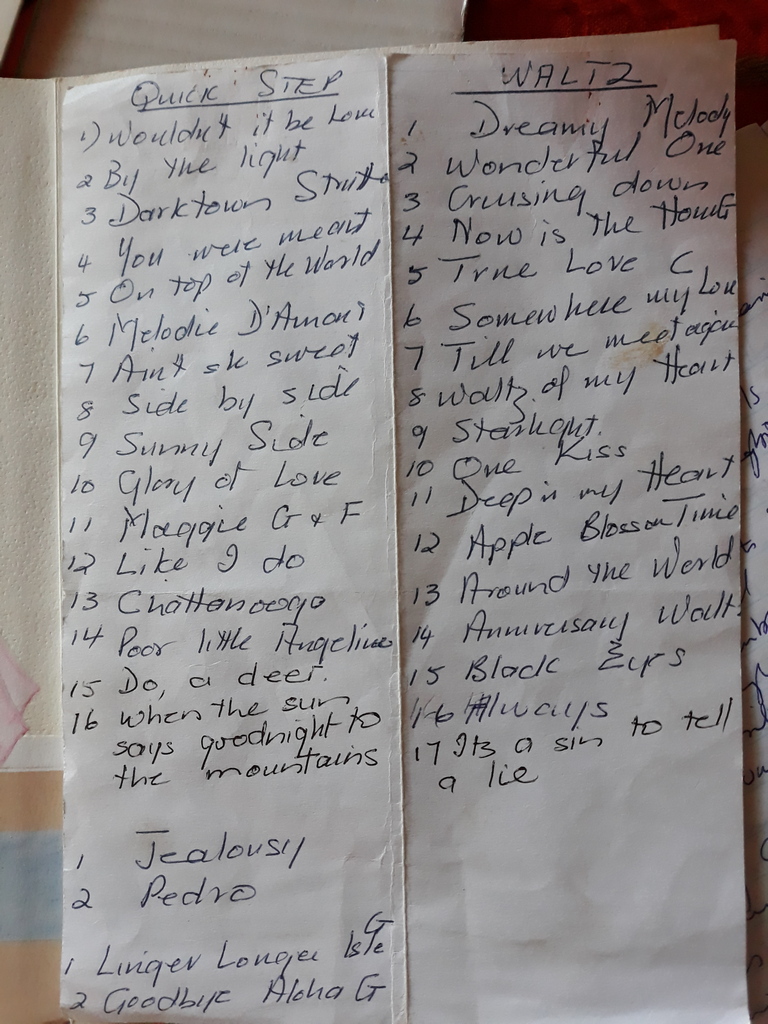 QUICK STEP
1) Wouldn't it be Love
2 By the light
3 Darktown Strutt
4 You were meant
5 On top of the World
6 Melodie D'Amori
7 Ain't she sweet
8 Side by side
9 Sunny Side
10 Glory of Love
11 Maggie G & F
12 Like I do
13 Chattanooga
14 Poor little Angeline
15 Do, a deer.
16 when the sun
says goodnight to
the mountains
1 Jealousy
2 Pedro
G
1 Linger Longer Isle
2 Goodbye Aloha G
WALTZ
1 Dreamy Melody
2 Wonderful One
3 Cruising down
4 Now is the Hour G
5 True Love C
6 Somewhere my Love
7 Till we meet again
8 Waltz of my Heart
9 Starlight.
10 One Kiss
11 Deep in my Heart
12 Apple Blossom Time
13 Around the World
14 Anniversary Waltz
15 Black Eyes
16 Always
17 Its a sin to tell
a lie